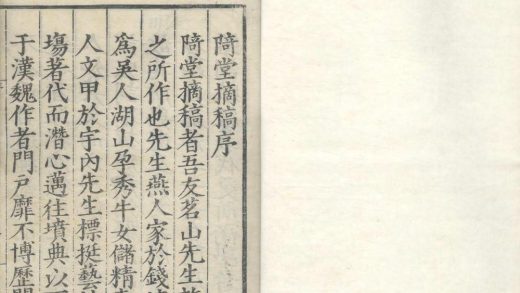 陭堂摘稿序
陭堂摘稿者吾友茗山先生
之所作也先生燕人家於錢
爲吳人湖山孕秀牛女儲精
人文甲於宇內先生標挺藝
塲著代而潛心邁往墳典以
于漢魏作者門戶靡不博歷